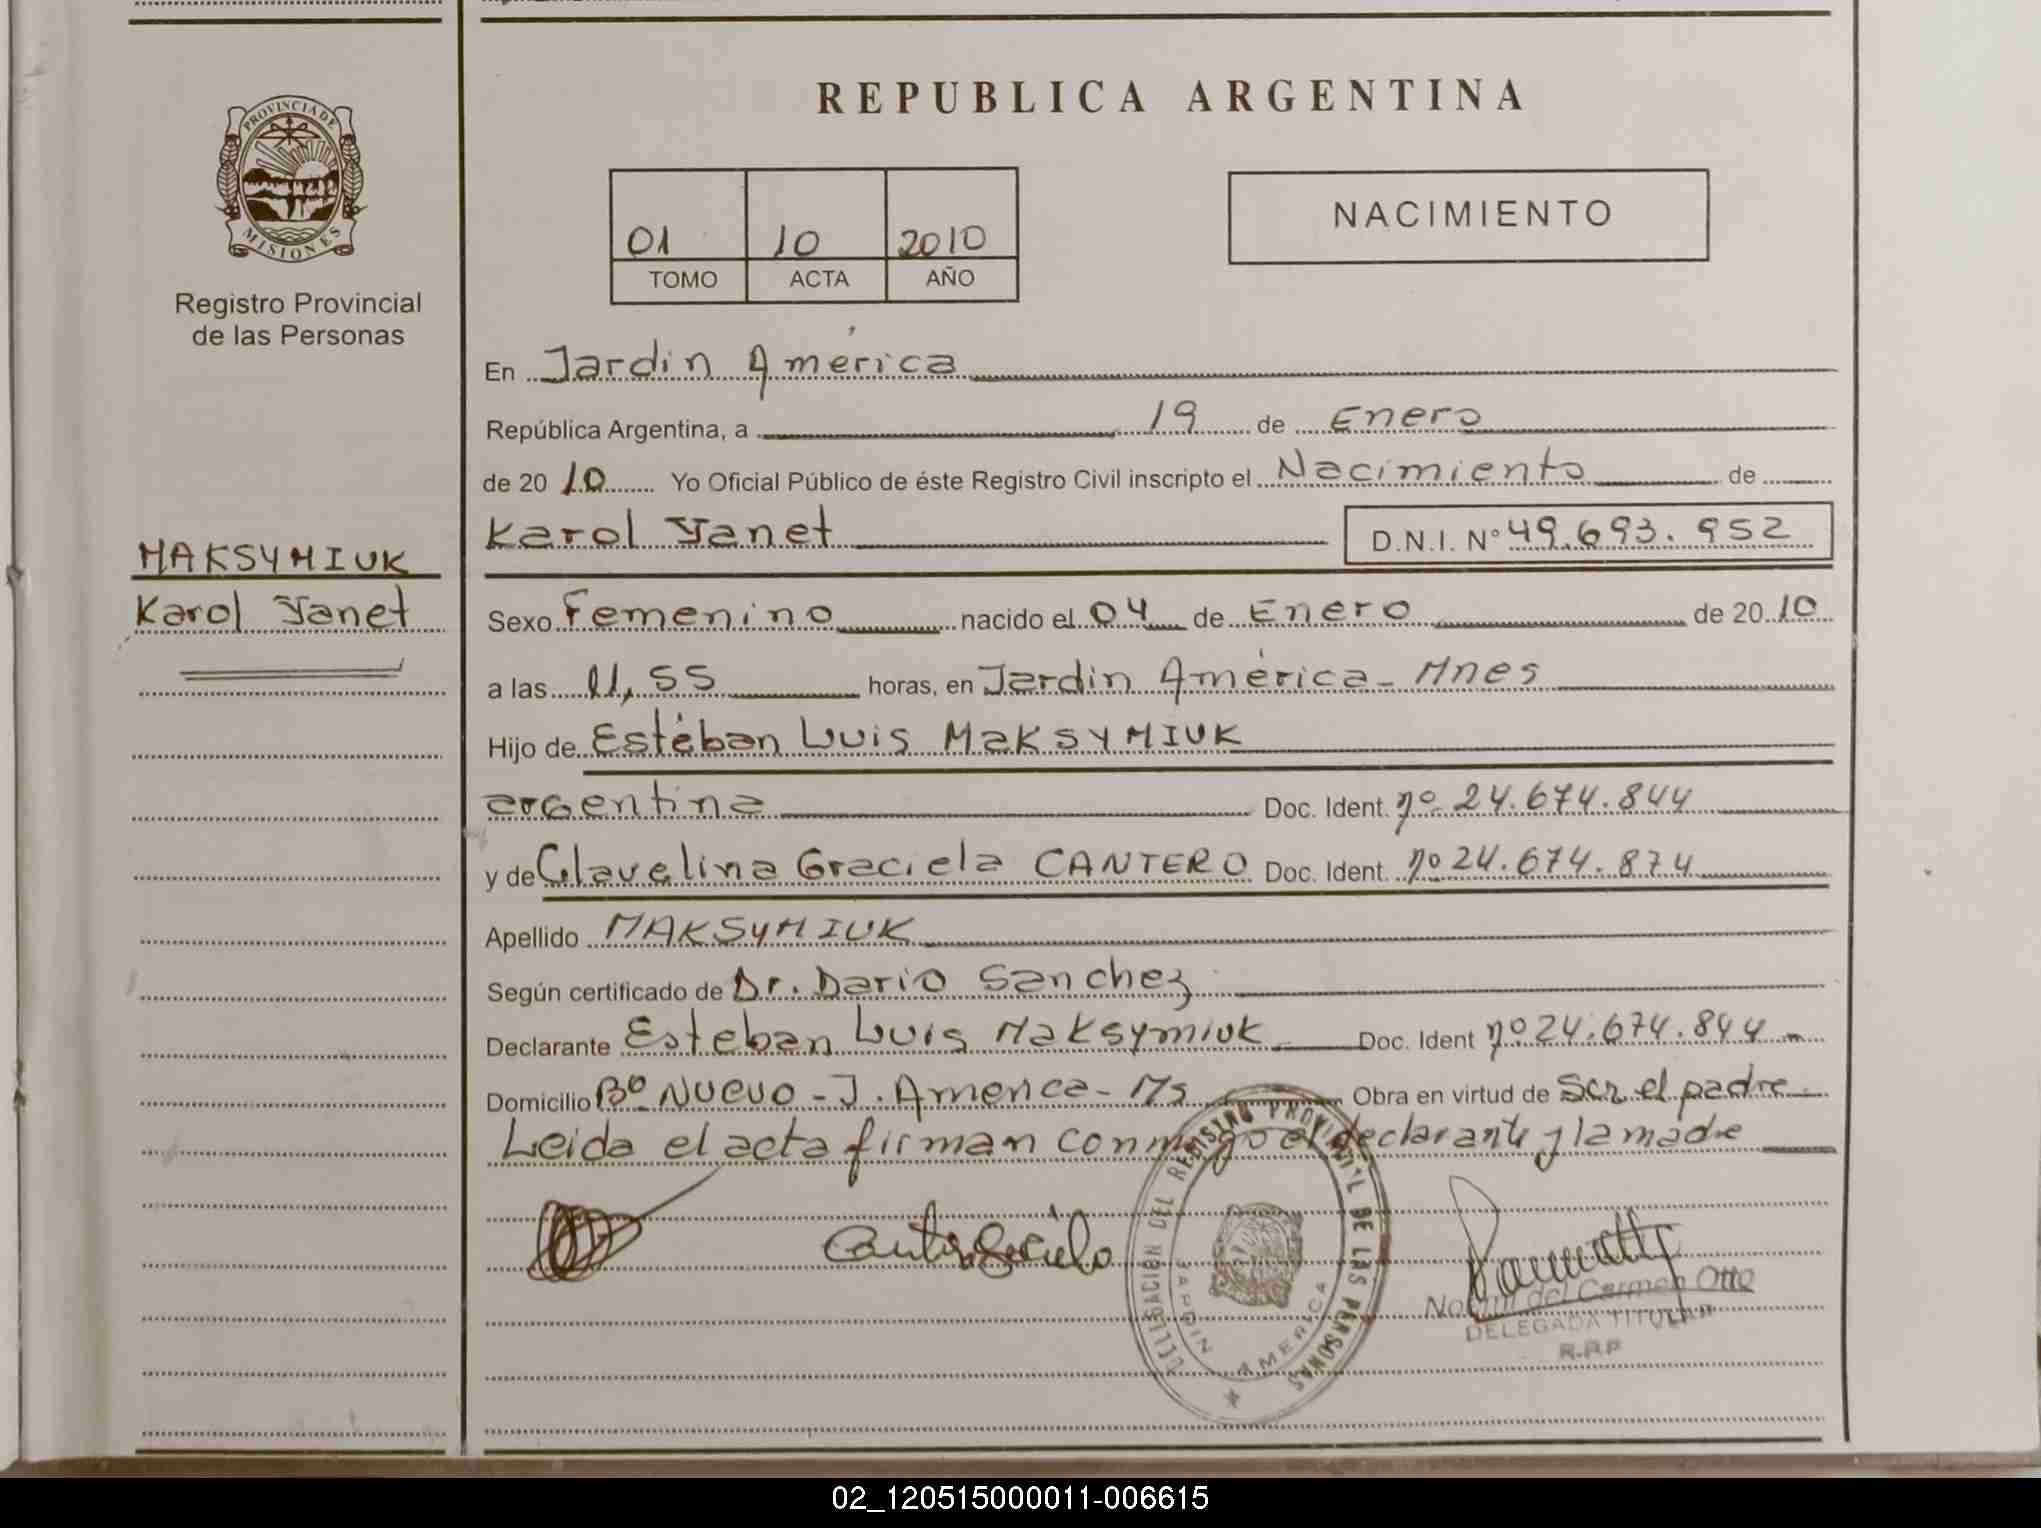 REPUBLICA ARGENTINA
PROVINCIA DE
MISIONES
Registro Provincial
de las Personas
MAKSYMIUK
Karol Yanet
01 10 2010
TOMO ACTA AÑO
NACIMIENTO
En Jardin América
República Argentina, a 19 de Enero
de 20 10 Yo Oficial Público de éste Registro Civil inscripto el Nacimiento de
Karol Yanet D.N.I. Nº 49.693.952
Sexo Femenino nacido el 04 de Enero de 20 10
a las 11,55 horas, en Jardin América - Mnes
Hijo de Estéban Luis MAKSYMIUK
argentina Doc. Ident. nº 24.674.844
y de Clavelina Graciela CANTERO Doc. Ident. nº 24.674.874
Apellido MAKSYMIUK
Según certificado de Dr. Dario Sanchez
Declarante Esteban Luis Maksymiuk Doc. Ident nº 24.674.844
Domicilio Bº Nuevo - J. America - Ms Obra en virtud de ser el padre
Leida el acta firman conmigo el declarante y la madre
DELEGACION DEL REGISTRO PROVINCIAL DE LAS PERSONAS
JARDIN AMERICA
del Carmen Otto
DELEGADA TITULAR
R.P.P
02_120515000011-006615